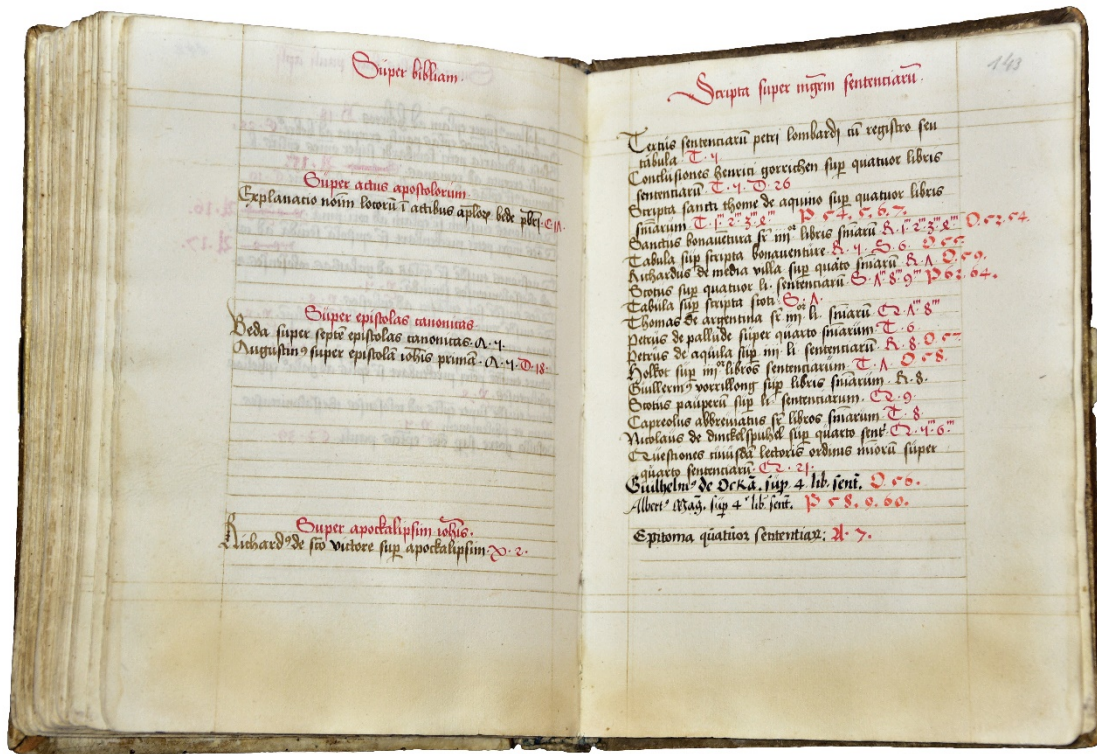 Super bibliam.
Super actus apostolorum
Explanacio noīm locorū ī actibus aplorꝝ bede pbri.
Super epistolas canonicas
Beda super septē epistolas canonicas. A. 4.
Augustinꝯ super epistolā iohis primā. A. 4. D. 18.
Super apockalipsim iohis.
Richardꝯ de sco victore sup apockalipsim. X. 2.
143
Scripta super mgrm sentenciarū.
Tercius sentenciarū petri lombardi cū registro seu
tabula T. 4
Conclusiones henrici gorrichen sup quatuor libris
sentenciarū T. 4. D. 26
Scripta sancti thome de aquino sup quatuor libris
sniarum T. 1. 2. 3. P 54. 5. 6. 7.
Sanctus bonauētura sr libris sniarū R. 1. 2. 3. O 52. 54.
Tabula sup scripta bonauenture R. 4. S. 6. O 55.
Richardus de media villa sup quāto sniarū R. A. O 59.
Scotus sup quatuor li. sentenciarū S. A. 8. 9. P 62. 64.
Tabula sup scripta scoti S. A.
Thomas de argentina sr li. sniarū 8
Petrus de pallude super quarto sniarum T. 6
Petrus de aquila sup li. sentenciarū R. 8. O 57.
Holkot sup libros sentenciarum T. A. O 58.
Guillermꝯ vorrillong sup libris sniarum. R. 8.
Scotus pauperū sup li. sentenciarum. 9.
Capreolus abbreuiatus sr libros sniarum T. 8.
Nicolaus de dinckelspuhel sup quarto sent. 6.
Questiones cuiusdā lectoris ordinis miorū super
quarto sentenciarū 21.
Guilhelmꝯ de Ockā. sup. 4. lib. sent. O. 56.
Albertꝯ Mag. sup 4 lib. sent. P 58. 9. 60.
Epitoma quatuor sententiaꝝ: A. 7.